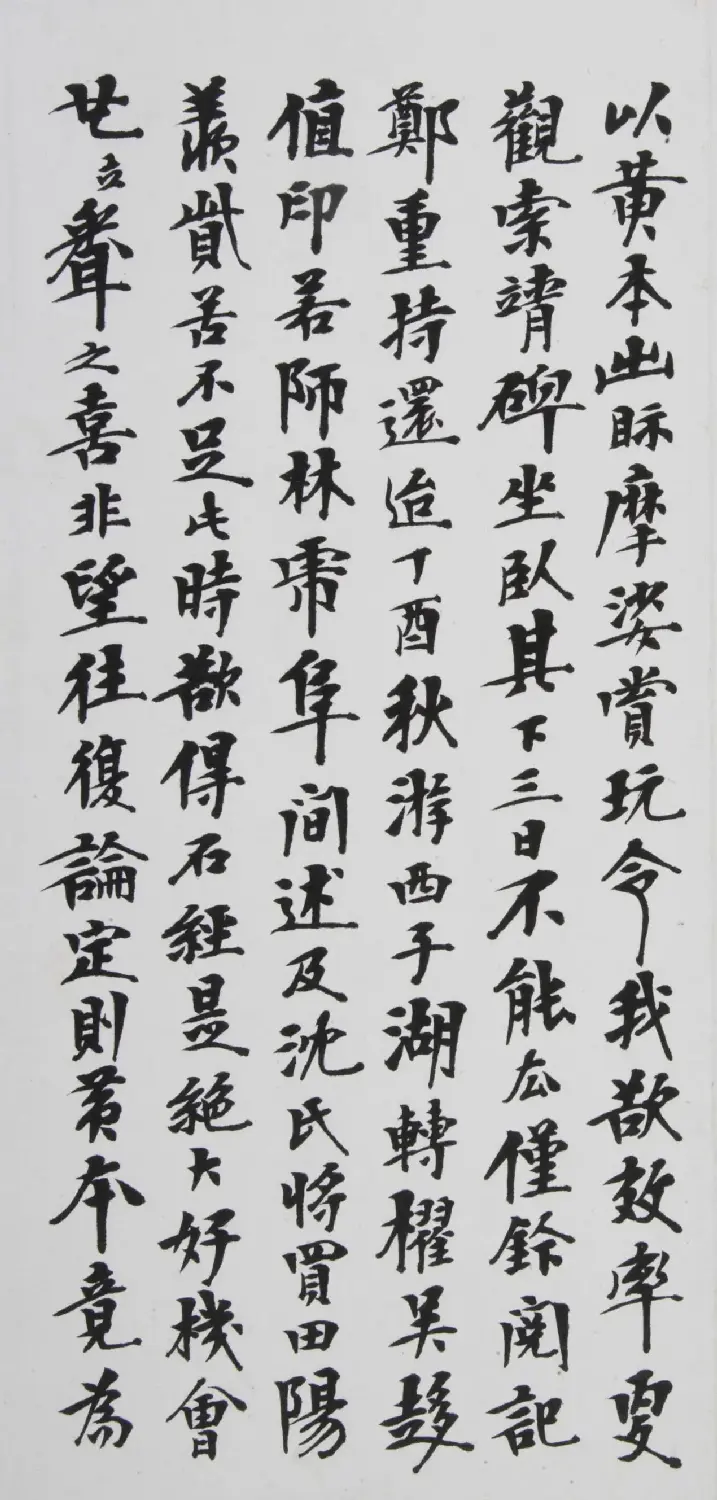 以黄本出眎摩娑賞玩令我欲效率更
觀索靖碑坐臥其下三日不能去僅鈐閱記
鄭重持還迨丁酉秋游西子湖轉櫂吴趍
值印若師林乕阜间述及沈氏將買田陽
羨貲苦不足此時欲得石經是絕大好機會
也立聲之喜非望往復論定則黄本竟為